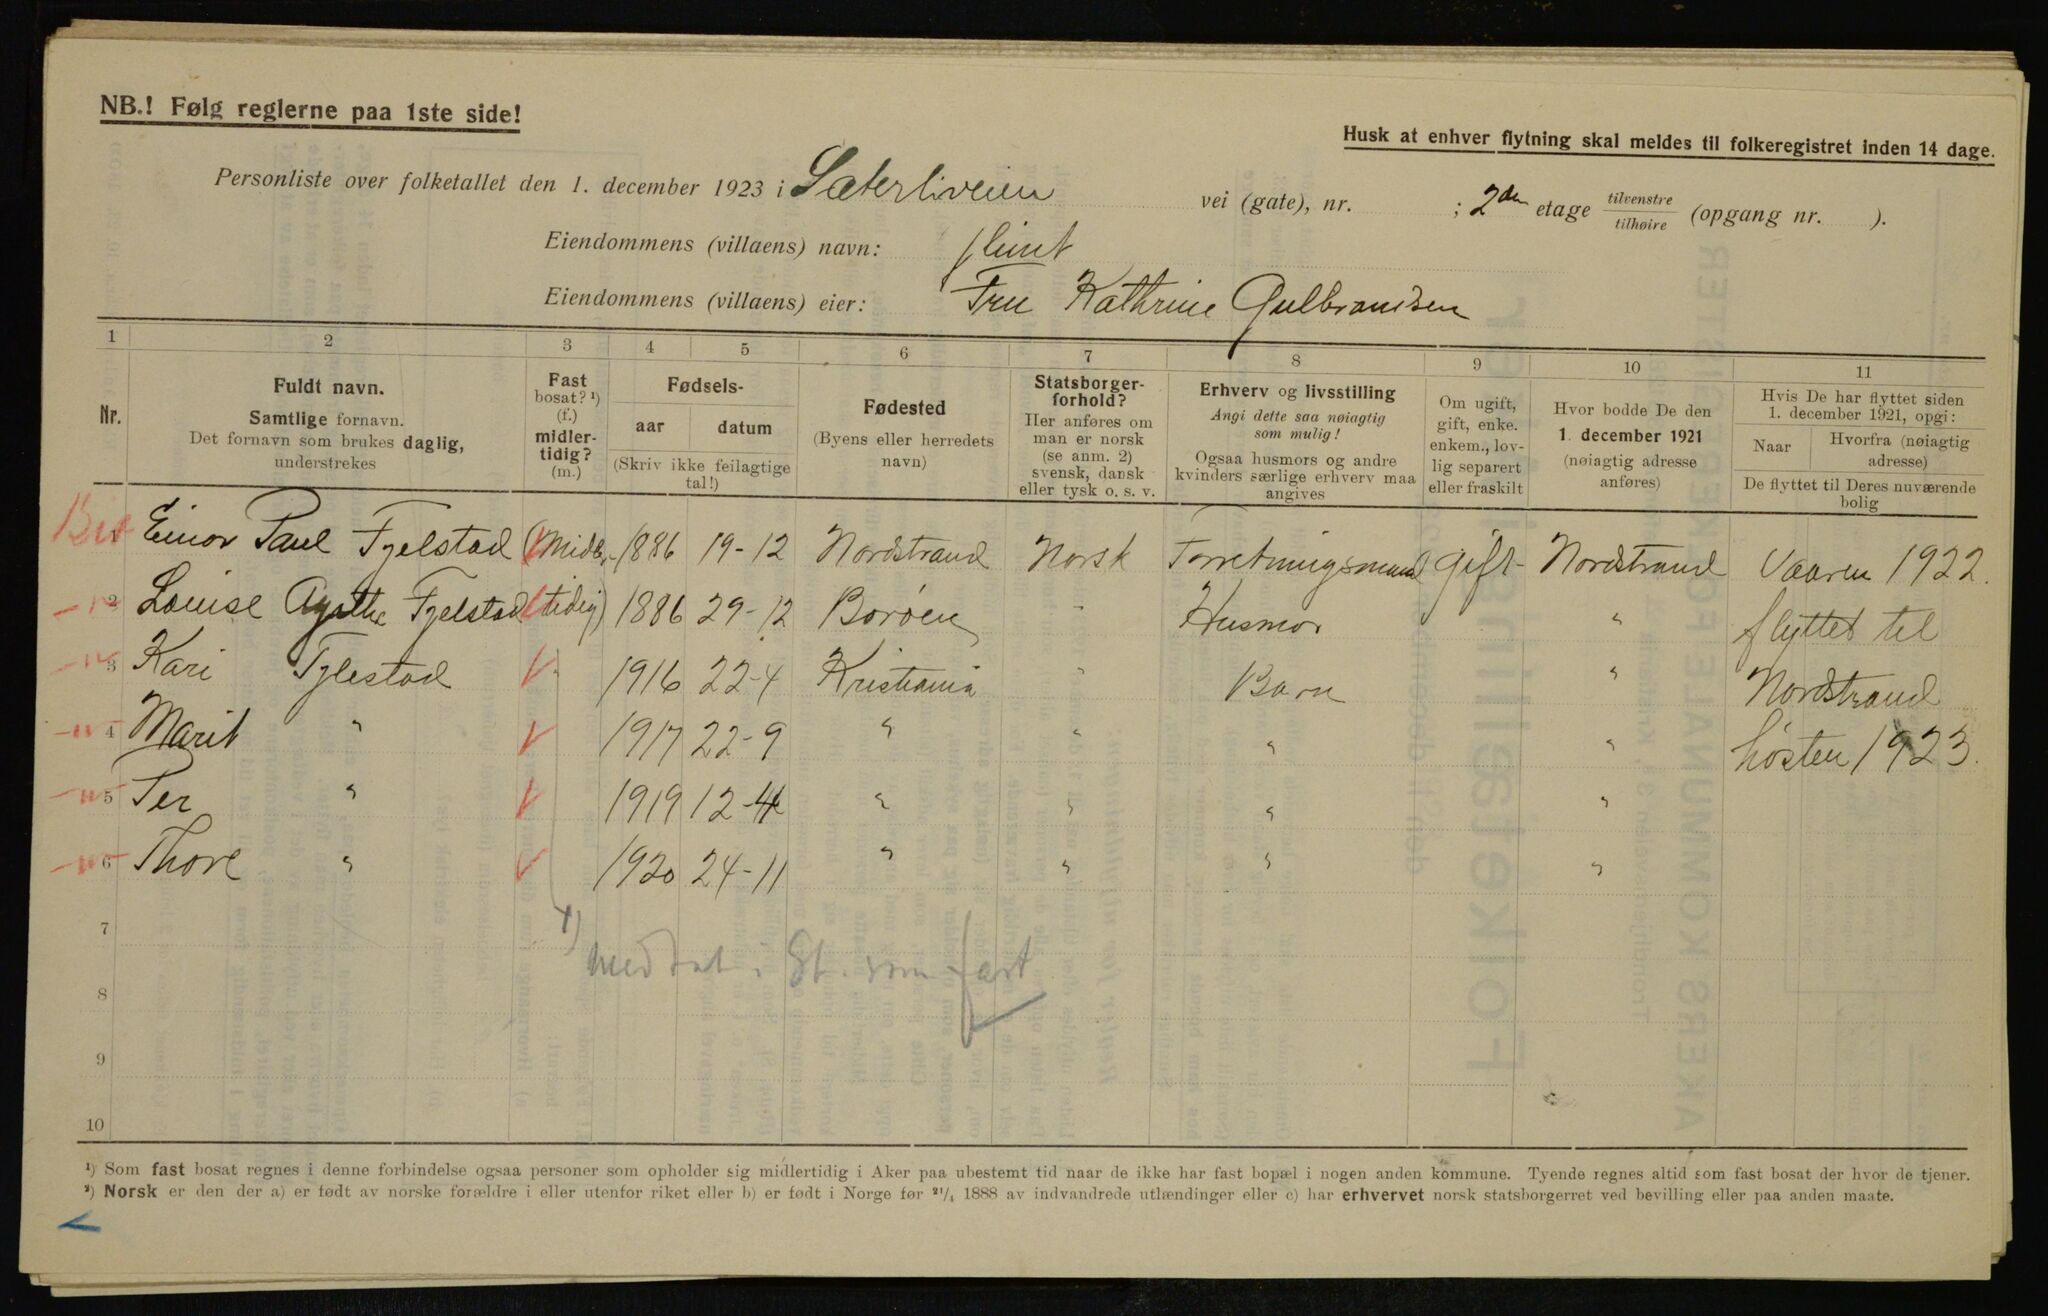 NB.! Følg reglerne paa 1ste side!
Husk at enhver flytning skal meldes til folkeregistret inden 14 dage.
Personliste over folketallet den 1. december 1923 i Sæterliveien vei (gate), nr. ; 2den etage tilvenstre tilhøire (opgang nr. ).
Eiendommens (villaens) navn: flint
Eiendommens (villaens) eier: Fru Kathrine Gulbrandsen
1 2 3 4 5 6 7 8 9 10 11
Nr.
Fuldt navn.
Samtlige fornavn.
Det fornavn som brukes daglig,
understrekes
Fast
bosat? ¹)
(f.)
midler-
tidig?
(m.)
Fødsels-
aar datum
(Skriv ikke feilagtige
tal!)
Fødested
(Byens eller herredets
navn)
Statsborger-
forhold?
Her anføres om
man er norsk
(se anm. 2)
svensk, dansk
eller tysk o. s. v.
Erhverv og livsstilling
Angi dette saa nøiagtig
som mulig!
Ogsaa husmors og andre
kvinders særlige erhverv maa
angives
Om ugift,
gift, enke.
enkem., lov-
lig separert
eller fraskilt
Hvor bodde De den
1. december 1921
(nøiagtig adresse
anføres)
Hvis De har flyttet siden
1. december 1921, opgi:
Naar Hvorfra (nøiagtig
adresse)
De flyttet til Deres nuværende
bolig
1 Einar Paul Fjelstad (Midler- 1886 19-12 Nordstrand Norsk Forretningsmand gift Nordstrand Vaaren 1922.
2 Louise Agathe Fjelstad tidig) 1886 29-12 Borøen " Husmor " flyttet til
3 Kari Fjelstad 1916 22-4 Kristiania " Barn " Nordstrand
4 Marit " 1917 22-9 " " " " høsten 1923.
5 Per " 1919 12-4 " " " "
6 Thore " 1920 24-11 " " " "
7
1)
medtat i St. som fast
8
9
10
¹) Som fast bosat regnes i denne forbindelse ogsaa personer som opholder sig midlertidig i Aker paa ubestemt tid naar de ikke har fast bopæl i nogen anden kommune. Tyende regnes altid som fast bosat der hvor de tjener.
²) Norsk er den der a) er født av norske forældre i eller utenfor riket eller b) er født i Norge før 21/4 1888 av indvandrede utlændinger eller c) har erhvervet norsk statsborgerret ved bevilling eller paa anden maate.